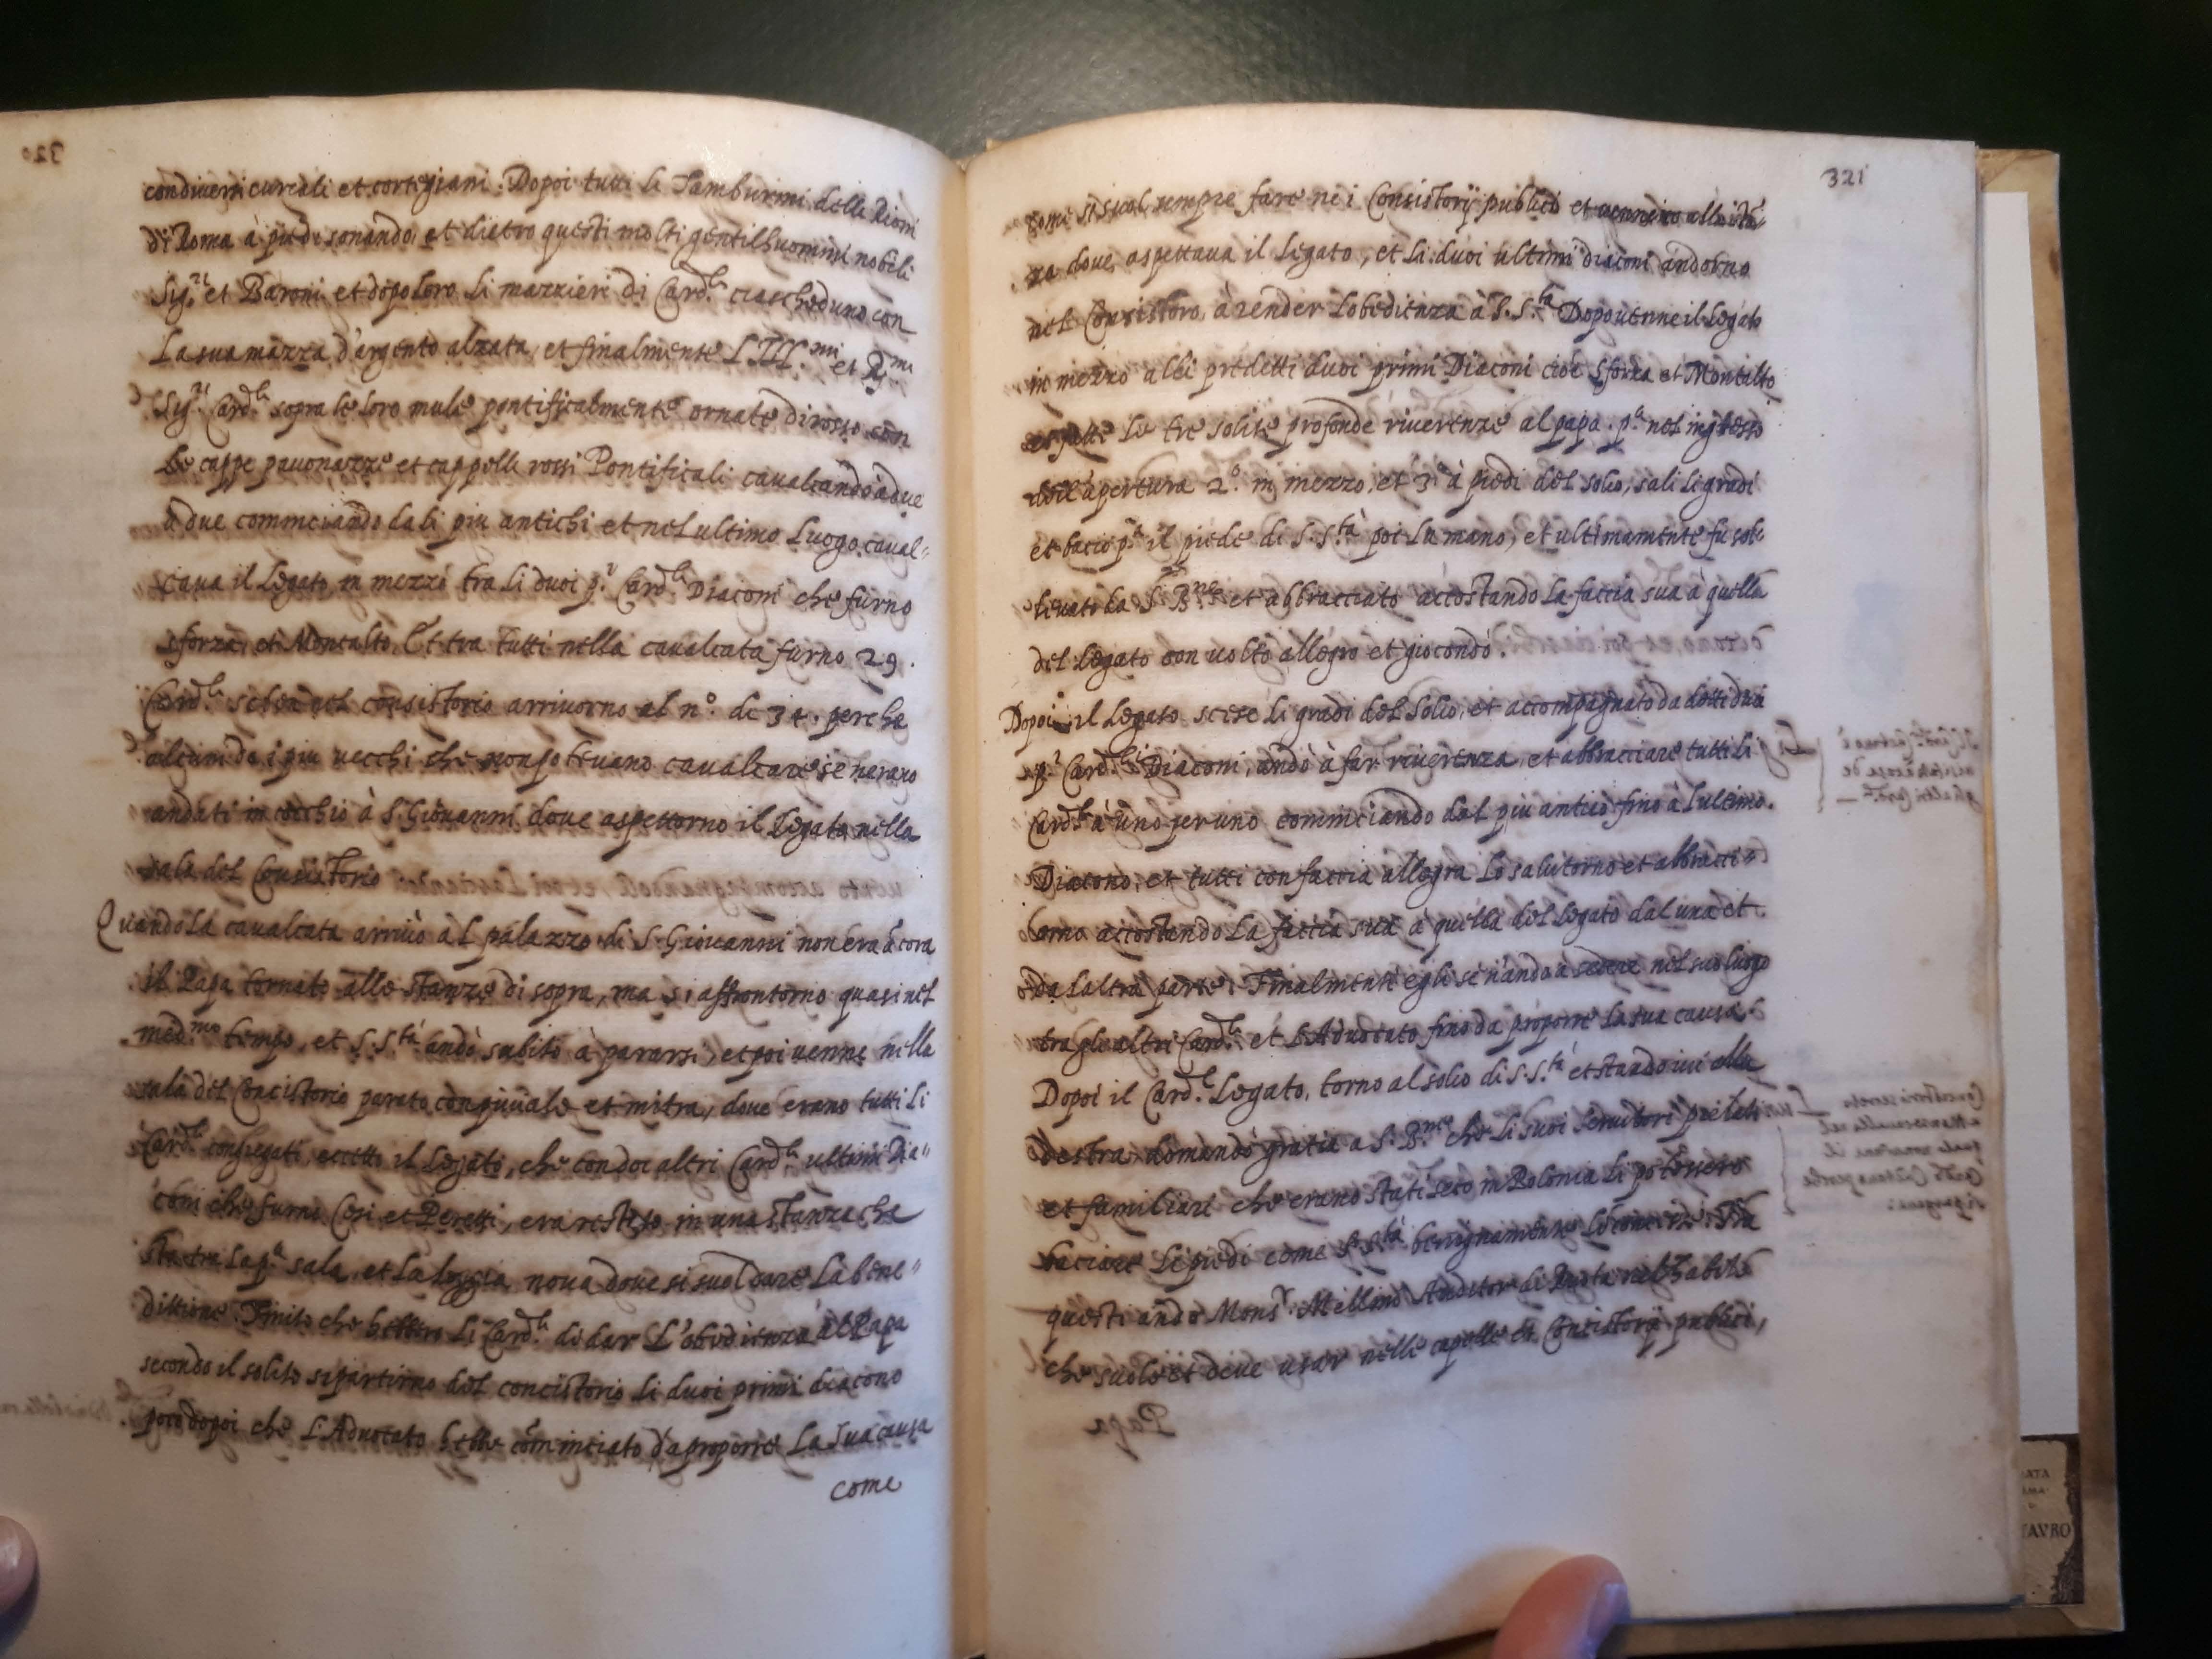 con diversi curiali et cortegiani. Dopoi tutti li Tamburini delli Rioni
di Roma à piedi sonando, et dietro questi molti gentilhuomini nobili
Sig.ri et Baroni et dopo loro li mazzieri di Card.li ciascheduno con
La sua mazza d'argento alzata, et finalmente L'Ill.mi et R.mi
Sig.ri Card.li sopra le loro mule pontificalmente ornate di rosso con
le cappe pavonazze et cappelli rossi Pontificali cavalcando à due
à due cominciando dali piu antichi et nel ultimo Luogo caval=
cava il Legato in mezzo tra li duoi p.i Card.li Diaconi che furno
sforza, et Montalto, Et tra tutti nella cavalcata furno 29.
Card.li sebene nel consistorio arrivorno al n.o de 34. perche
alcuni de i piu vecchi che non potevano cavalcare se n'erano
andati in cocchio à S. Giovanni dove aspettorno il Legato nella
sala del Consistorio
Quando La cavalcata arrivò al palazzo di S. Giovanni non era ācora
il Papa tornato alle stanze di sopra, ma si affrontorno quasi nel
med.mo tempo, et S. S.tà andò subito à pararsi, et poi venne nella
sala del Concistorio parato con piviale et mitra, dove erano tutti li
Card.li congregati eccetto il Legato, che con doi altri Card.li ultimi Dia=
coni che furno Cesi et Peretti, era restato in una stanza che
sta tra la p.a sala, et La loggia nova dove si suol dare La bene=
dittione. Finito che hebbero li Card.li di dar L'obedienza al Papa
secondo il solito si partirno del concistorio li duoi primi diacono
poco dopoi che L'Advocato hebbe cominciato d'a proporre La sua causa
come
321
come si suol sempre fare ne i Consistorij publici et vennero alla stā=
za dove aspettava il Legato, et li duoi ultimi diaconi andorno
nel Consistoro, à render L'obedienza à S. S.tà Dopo venne il Legato
in mezzo alli predetti duoi primi Diaconi cioè Sforza et Montalto
et fatte le tre solite profonde riverenze al papa. p.a nel ingresso
dell'apertura 2.o in mezzo, et 3.o à piedi del solio, sali li gradi
et baciò p.a il piede di S. S.tà poi La mano, et ultimamente fu sol=
levato da S. B.ne et abbracciato accostando La faccia sua à quella
del Legato con volto allegro et giocondo.
Dopoi il Legato scese li gradi del Solio, et accompagnato da detti duoi
p.i Card.li Diaconi, andò à far riverenza, et abbracciare tutti li
Card.li à uno per uno cominciando dal piu antico fino à l'ultimo
Diacono, et tutti con faccia allegra Lo salutorno et abbracci=
orno accostando La faccia sua à quella del Legato dal una et
da l'altra parte. Finalmente egli se n'andò à sedere nel suo luogo
tra gli altri Card.li et L'Advocato finò da proporre La sua causa.
Dopoi il Card.l Legato, torno al solio di S. S.tà et stando ivi alla
destra domandò gratia a S. B.ne che li suoi servitori prelati
et familiari che erano stati seco in Polonia li potessero
baciare li piedi come S. S.tà benignamente Lo concesse. Tra
questi andò Mons.r Mellino Auditor di Ruota nel habito
che suole et deve usar nelle capelle et Concistorij publici,